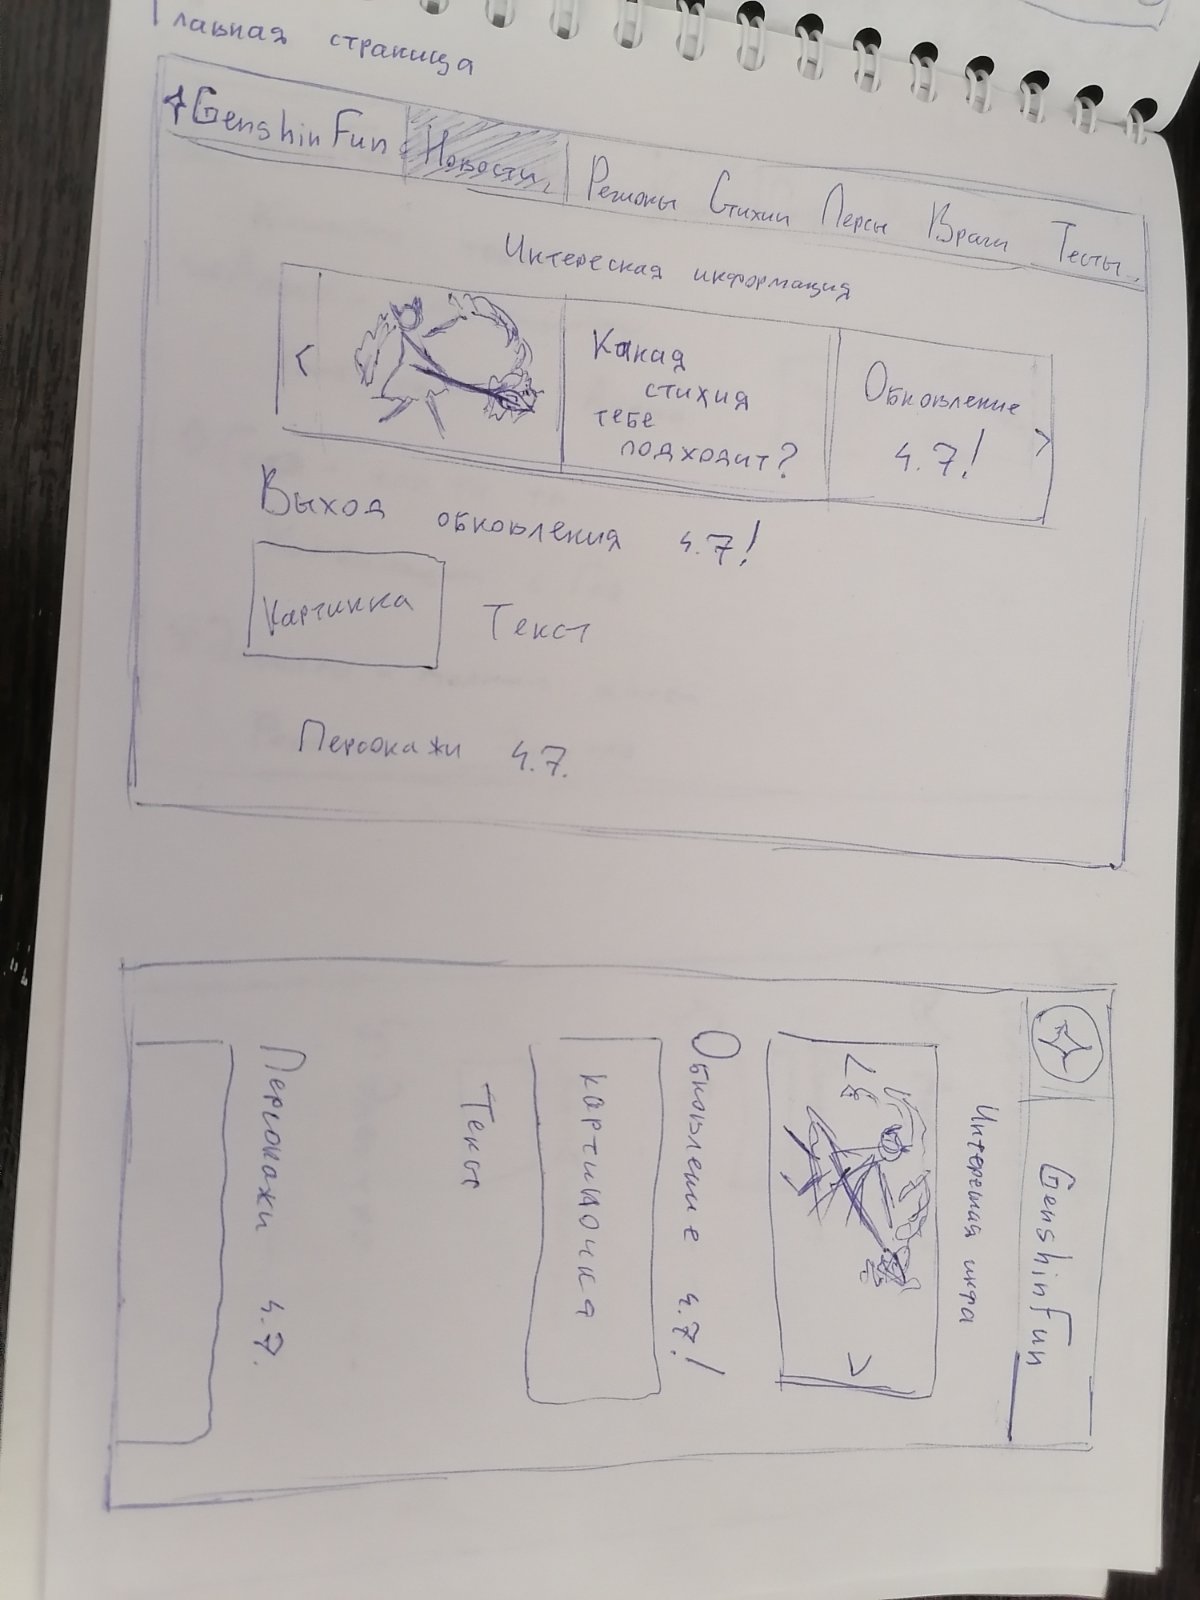 Главная страница
GenshinFun Новости Регионы Стихии Персы Враги Тесты
Интересная информация
<
Какая
стихия
тебе
подходит?
Обновление
4.7!
>
Выход обновления 4.7!
Картинка
Текст
Персонажи 4.7.
GenshinFun
Интересная инфа
<
>
Обновление 4.7!
картиночка
Текст
Персонажи 4.7.